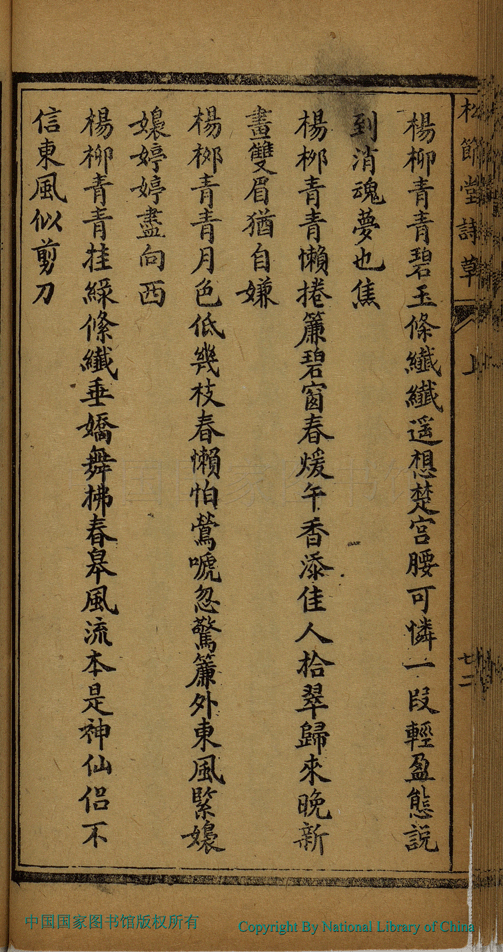 松節堂詩草
上
七二
楊柳青青碧玉條纖纖遥想楚宫腰可憐一段輕盈態說
到消魂夢也焦
楊柳青青懶捲簾碧窗春煖午香添佳人拾翠歸來晚新
畫雙眉猶自嫌
楊柳青青月色低幾枝春懶怕鶯嗁忽驚簾外東風緊嬝
嬝婷婷盡向西
楊柳青青挂綠絛纖垂嬌舞拂春皋風流本是神仙侶不
信東風似剪刀
中国国家图书馆版权所有
Copyright By National Library of China